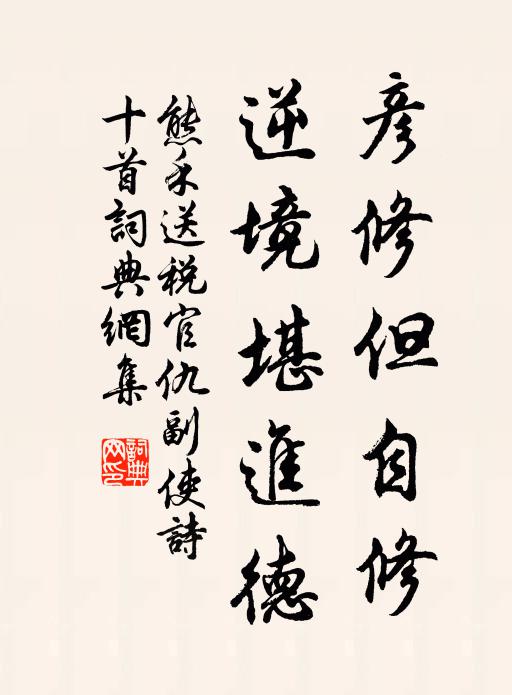 彦修但自修
逆境堪進德
熊禾送税官仇副使詩
十首詞典網集
詞典網印